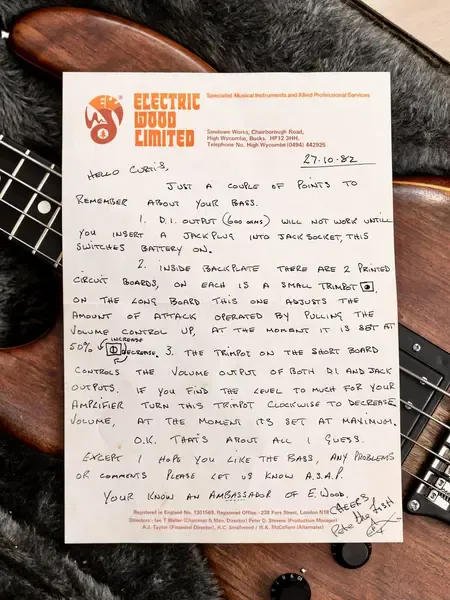 ELECTRIC
WOOD
LIMITED
Specialist Musical Instruments and Allied Professional Services
Sandown Works, Chairborough Road,
High Wycombe, Bucks. HP12 3HH.
Telephone No. High Wycombe (0494) 442925
27.10.82
HELLO CURTIS,
JUST A COUPLE OF POINTS TO
REMEMBER ABOUT YOUR BASS.
1. D.I. OUTPUT (600 OHMS) WILL NOT WORK UNTILL
YOU INSERT A JACKPLUG INTO JACK SOCKET, THIS
SWITCHES BATTERY ON.
2. INSIDE BACKPLATE THERE ARE 2 PRINTED
CIRCUIT BOARDS, ON EACH IS A SMALL TRIMPOT,
ON THE LONG BOARD THIS ONE ADJUSTS THE
AMOUNT OF ATTACK OPERATED BY PULLING THE
VOLUME CONTROL UP, AT THE MOMENT IT IS SET AT
INCREASE
50% DECREASE. 3. THE TRIMPOT ON THE SHORT BOARD
CONTROLS THE VOLUME OUTPUT OF BOTH D.I AND JACK
OUTPUTS. IF YOU FIND THE LEVEL TO MUCH FOR YOUR
AMPLIFIER TURN THIS TRIMPOT CLOCKWISE TO DECREASE
VOLUME, AT THE MOMENT IT'S SET AT MAXIMUM.
O.K. THAT'S ABOUT ALL I GUESS.
EXCEPT I HOPE YOU LIKE THE BASS, ANY PROBLEMS
OR COMMENTS PLEASE LET US KNOW A.S.A.P.
YOUR KNOW AN AMBASSADOR OF E.WOOD.
CHEERS,
Pete the FISH
Registered in England No. 1301569. Registered Office - 238 Fore Street, London N18
Directors: Ian T Waller (Chairman & Man. Director) Peter D. Stevens (Production Manager)
A.J. Taylor (Financial Director), A.C. Smallwood / W.K. McClelland (Alternate)